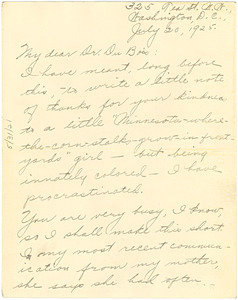 325 Tea St., N.W.,
Washington, D.C.,
July 20, 1925.
My dear Dr. Du Bois:
I have meant, long before
this, to write a little note
of thanks for your kindness
to a little "Minnesota-where-
the-corn-stalks-grow-in-front-
yards" girl — but being
innately colored — I have
procrastinated.
You are very busy, I know,
so I shall make this short.
In my most recent commun-
ication from my mother,
she says she had often